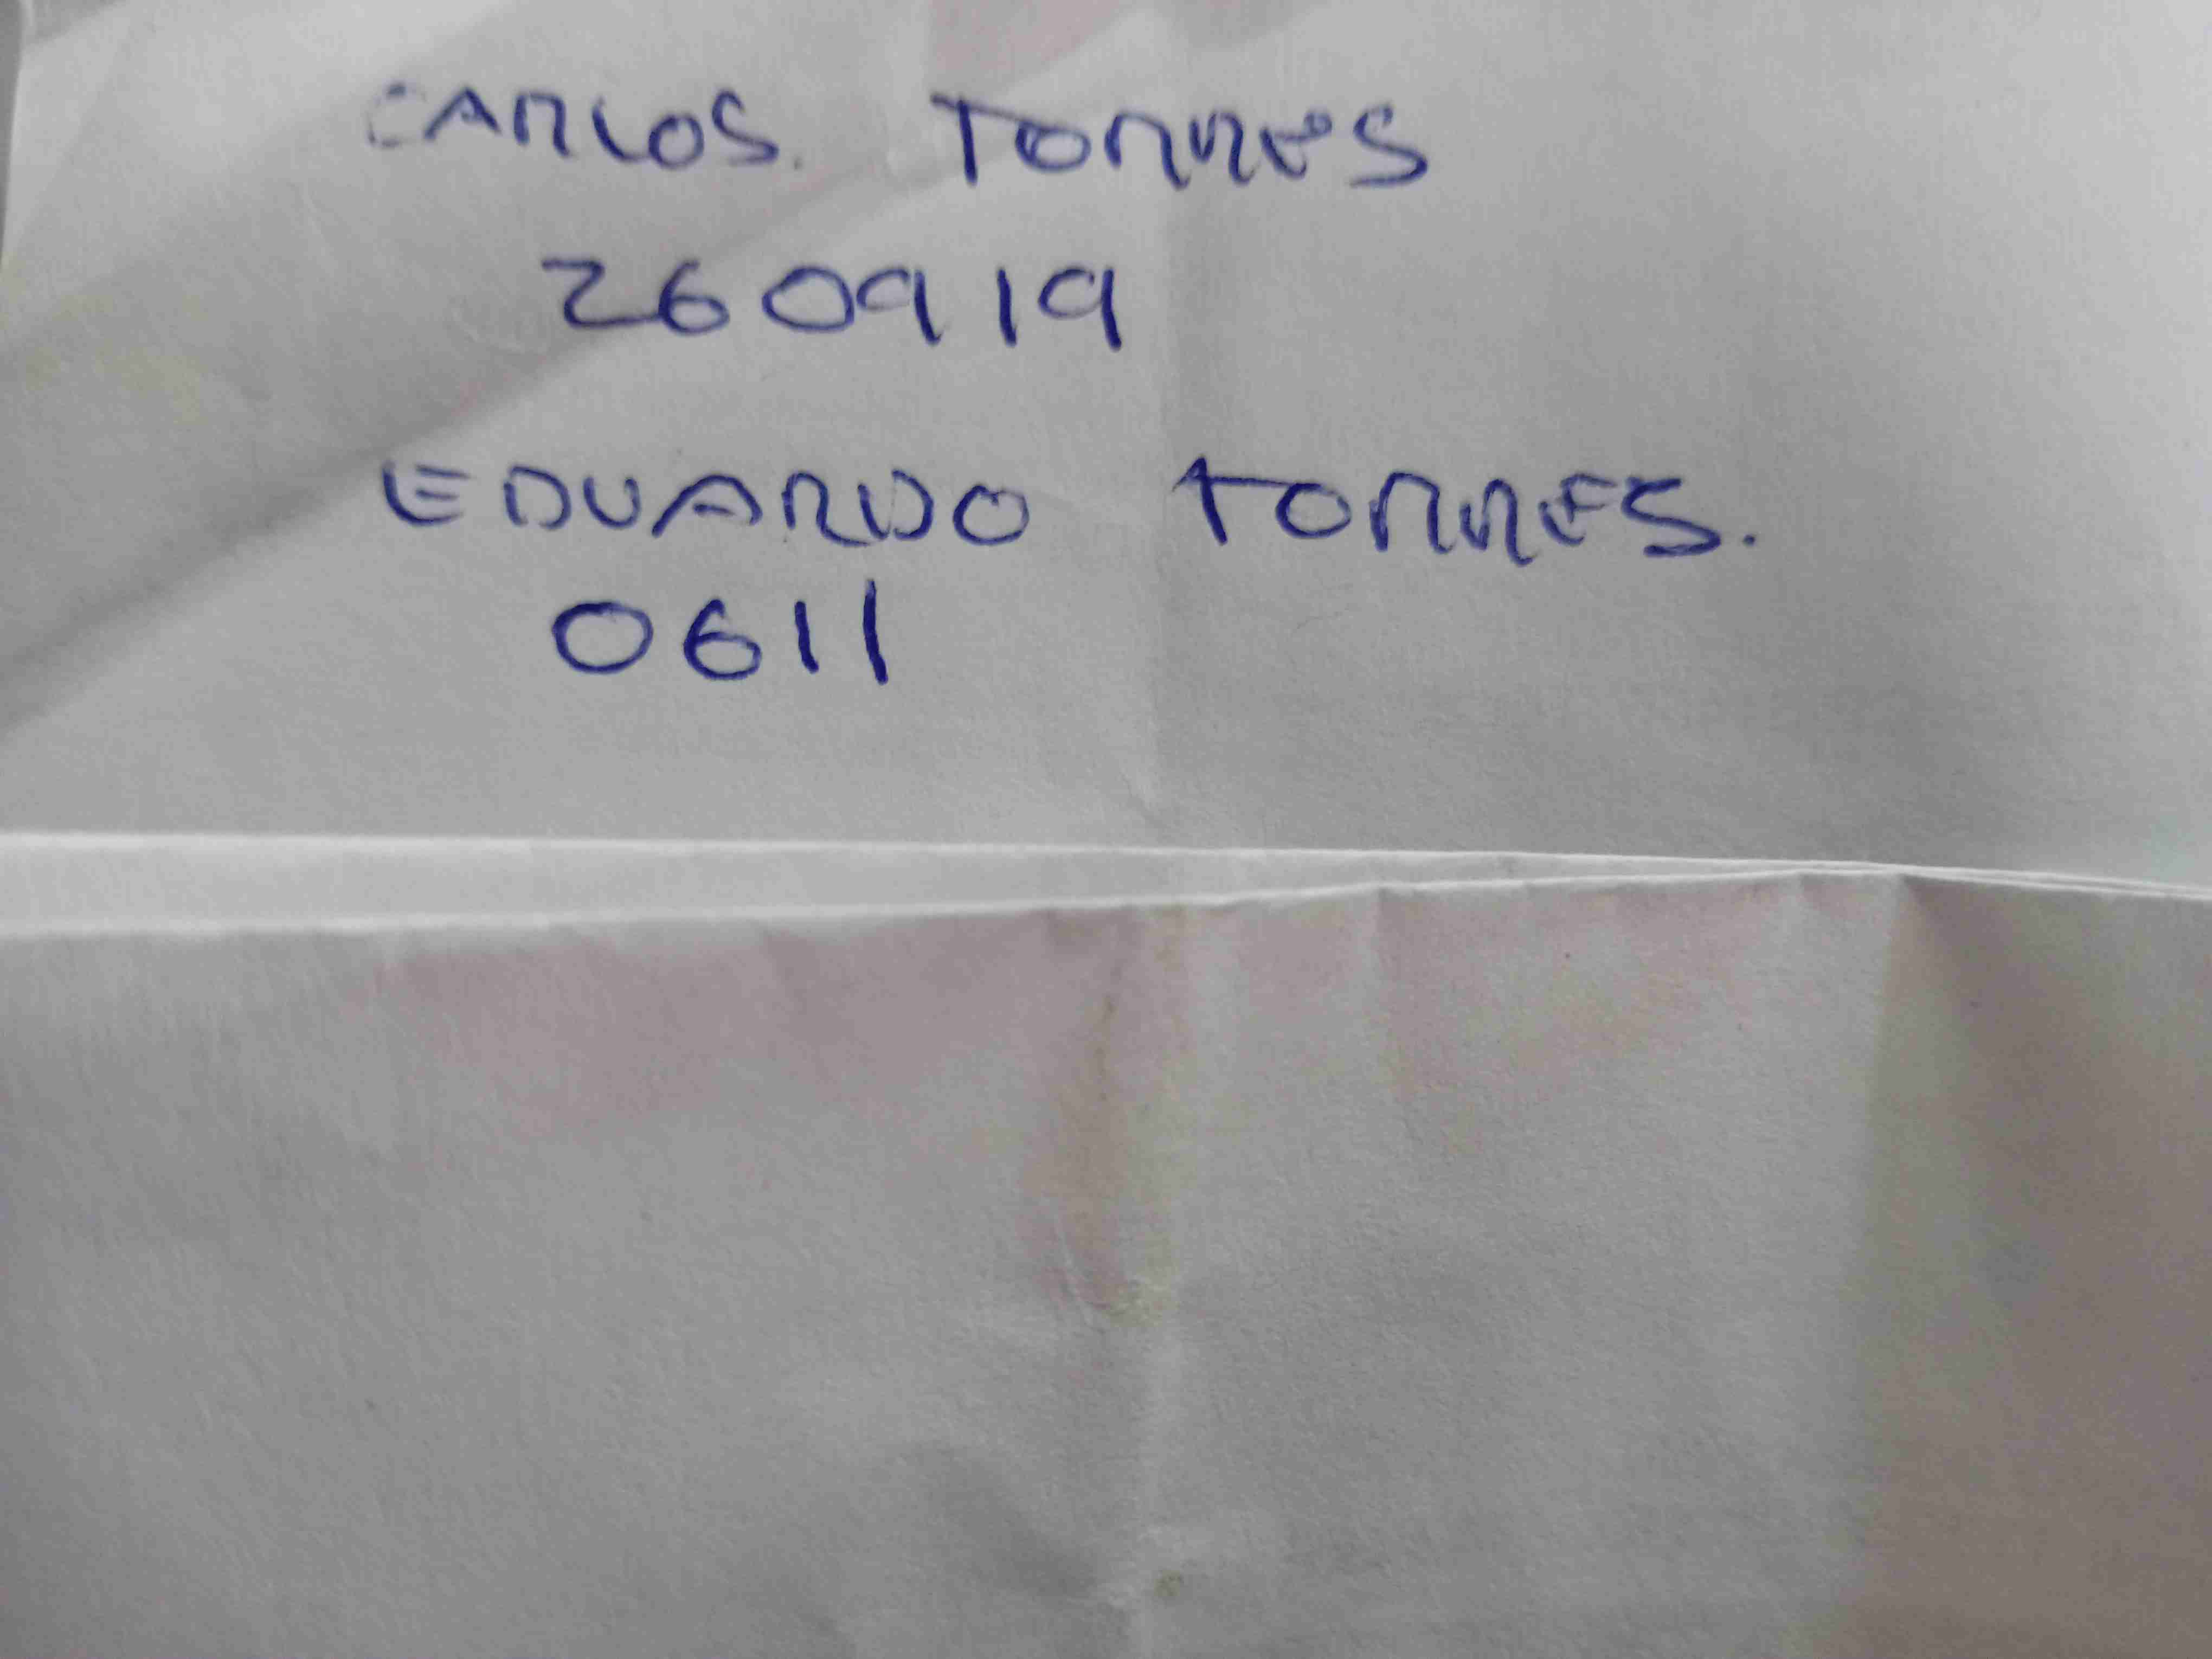 CARLOS. TORRES
260919
EDUARDO TORRES.
0611